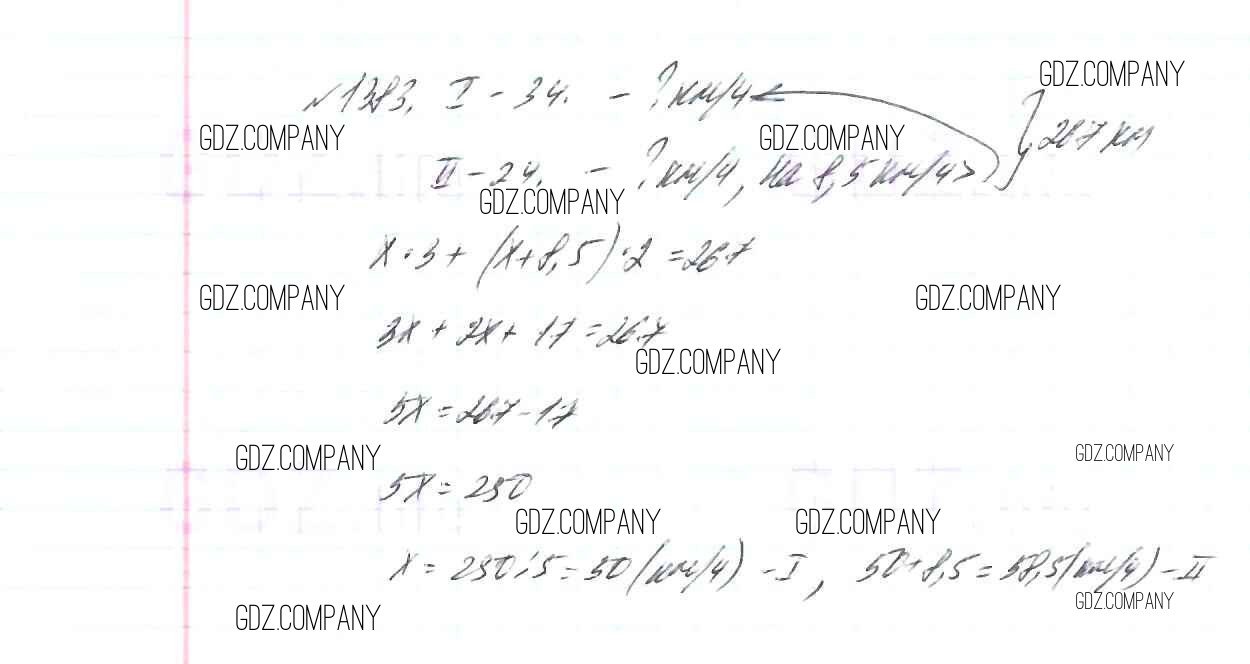 GDZ.COMPANY
№1383. I - 3ч. - ? км/ч
GDZ.COMPANY GDZ.COMPANY } 267 км
II - 2ч. - ? км/ч, на 8,5 км/ч >
GDZ.COMPANY
x·3 + (x+8,5)·2 = 267
GDZ.COMPANY GDZ.COMPANY
3x + 2x + 17 = 267
GDZ.COMPANY
5x = 267 - 17
GDZ.COMPANY GDZ.COMPANY
5x = 250
GDZ.COMPANY GDZ.COMPANY
x = 250 : 5 = 50 (км/ч) - I, 50+8,5 = 58,5 (км/ч) - II
GDZ.COMPANY
GDZ.COMPANY